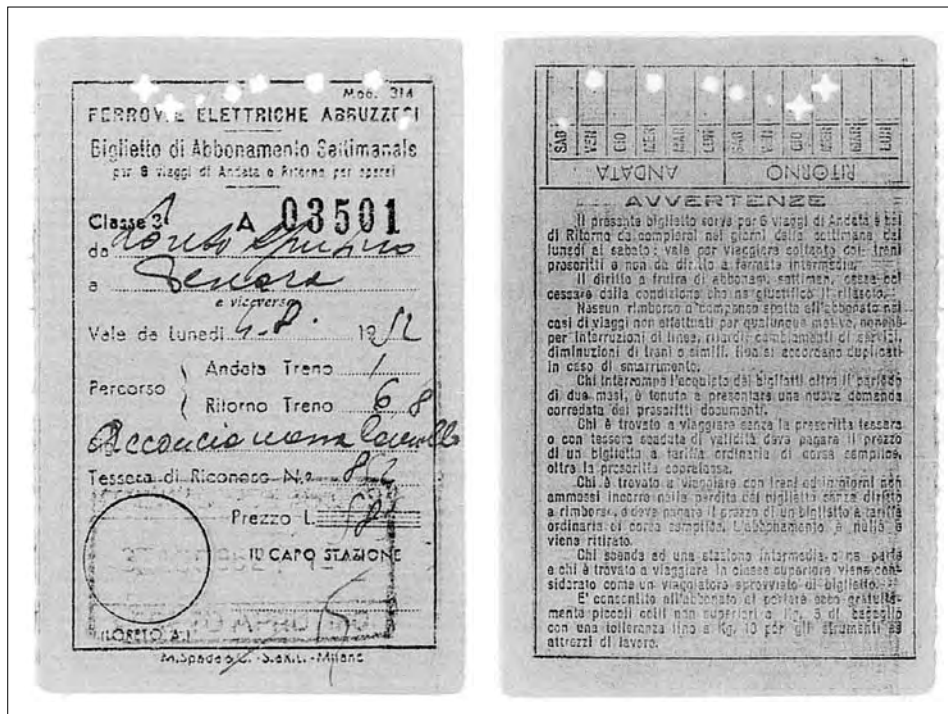 Mod. 314
FERROVIE ELETTRICHE ABRUZZESI
Biglietto di Abbonamento Settimanale
per 6 viaggi di Andata e Ritorno per operai
Classe 3ª A 03501
da Loreto Aprutino
a Pescara
e viceversa
Vale da Lunedì 4-8. 1952
Percorso
Andata Treno 1
Ritorno Treno 6 8
Tessera di Riconosc. N.° 82
Prezzo L.
IL CAPO STAZIONE
LORETO A.
M. Spada & C. - S.a.r.l. - Milano
SAB VEN GIO MER MAR LUN SAB VEN GIO MER MAR LUN
ANDATA RITORNO
AVVERTENZE
Il presente biglietto serve per 6 viaggi di Andata e sei
di Ritorno da compiersi nei giorni della settimana dal
lunedì al sabato; vale per viaggiare soltanto coi treni
prescritti e non dà diritto a fermate intermedie.
Il diritto a fruire di abbonam. settiman. cessa col
cessare della condizione che ne giustificò il rilascio.
Nessun rimborso o compenso spetta all'abbonato nei
casi di viaggi non effettuati per qualunque motivo, nonchè
per interruzioni di linee, ritardi, cambiamenti di servizi,
diminuzioni di treni o simili. Non si accordano duplicati
in caso di smarrimento.
Chi interrompe l'acquisto dei biglietti oltre il periodo
di due mesi, è tenuto a presentare una nuova domanda
corredata dei prescritti documenti.
Chi è trovato a viaggiare senza la prescritta tessera
o con tessera scaduta di validità deve pagare il prezzo
di un biglietto a tariffa ordinaria di corsa semplice,
oltre la prescritta sopratassa.
Chi è trovato a viaggiare con treni ed in giorni non
ammessi incorre nella perdita del biglietto senza diritto
a rimborso, e deve pagare il prezzo di un biglietto a tariffa
ordinaria di corsa semplice. L'abbonamento è nullo e
viene ritirato.
Chi scende ad una stazione intermedia o ne parte
e chi è trovato a viaggiare in classe superiore viene con-
siderato come un viaggiatore sprovvisto di biglietto.
E' consentito all'abbonato di portare seco gratuita-
mente piccoli colli non superiori a Kg. 5 di bagaglio
con una tolleranza fino a Kg. 10 per gli strumenti ed
attrezzi di lavoro.